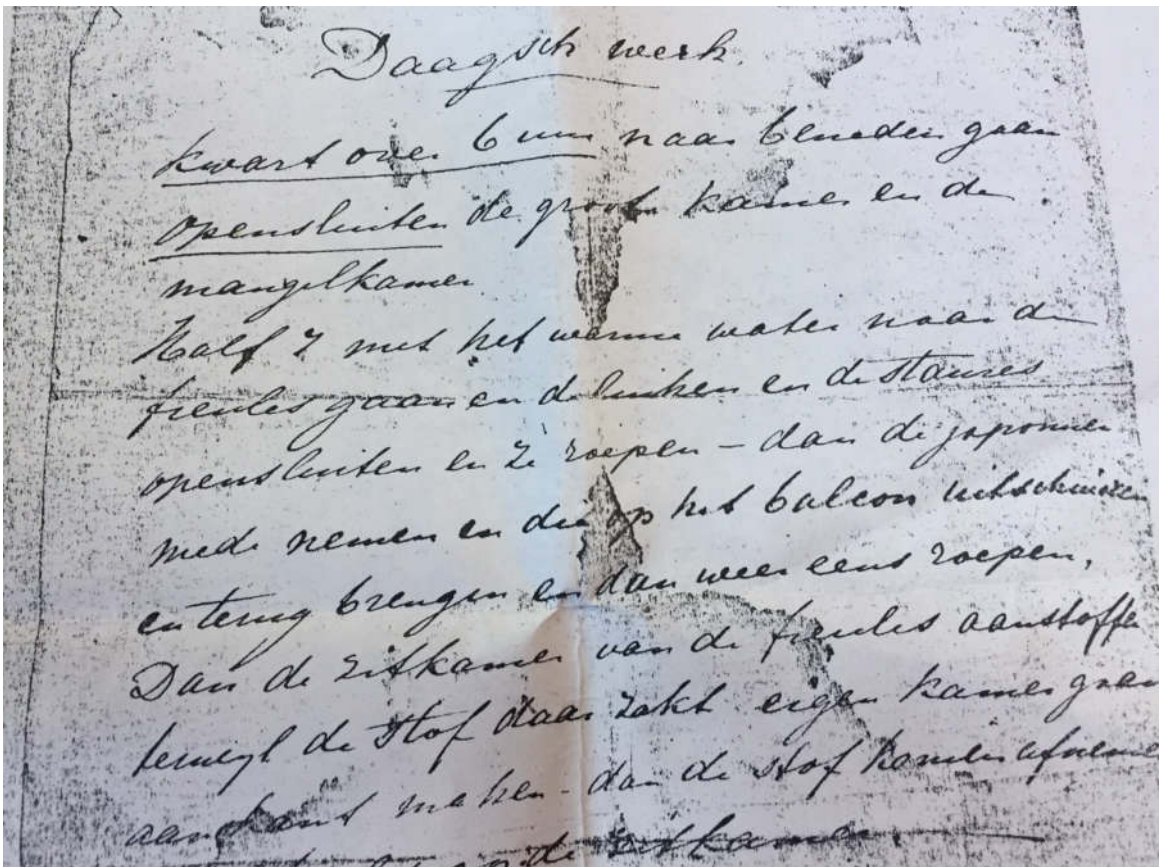 Daagsch werk.
kwart over 6 uur naar beneden gaan
opensluiten de groote kamer en de
mangelkamer
Half 7 met het warme water naar de
freules gaan en de luiken en de stoures
opensluiten en ze roepen – dan de japonnen
mede nemen en die op het balcon uitschuieren
en terug brengen en dan weer eens roepen,
Dan de zitkamer van de freules aanstoffen
terwijl de stof daar zakt eigen kamer gaan
aan kant maken – dan de stof kamer afnemen
de zitkamer